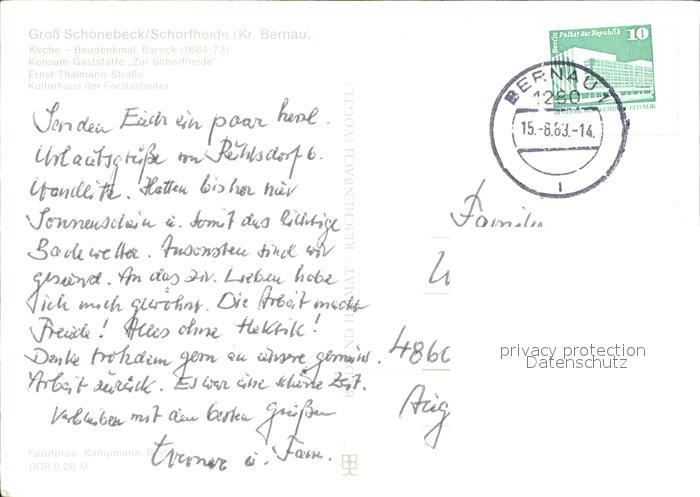 Groß Schönebeck/Schorfheide (Kr. Bernau)
Kirche – Baudenkmal, Barock (1664-73)
Konsum-Gaststätte „Zur Schorfheide"
Ernst-Thälmann-Straße
Kulturhaus der Forstarbeiter
Senden Euch ein paar herzl.
Urlaubsgrüße von Rühlsdorf b.
Wandlitz. Hatten bisher nur
Sonnenschein u. somit das richtige
Badewetter. Ansonsten sind wir
gesund. An das ziv. Leben habe
ich mich gewöhnt. Die Arbeit macht
Freude! Alles ohne Hektik!
Denke trotzdem gern an unsere gemeins.
Arbeit zurück. Es war eine schöne Zeit.
Verbleiben mit den besten Grüßen
Werner u. Fam.
Farbfotos: Kampmann,
DDR 0,20 M
BILD UND HEIMAT · REICHENBACH (VOGTL)
Berlin Palast der Republik 10
BERNAU 1
1280
15.-8.83.-14
Familie
4860
privacy protection
Datenschutz